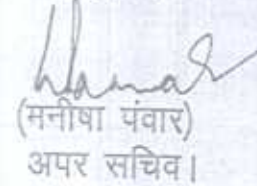 (मनीषा पंवार)
अपर सचिव।